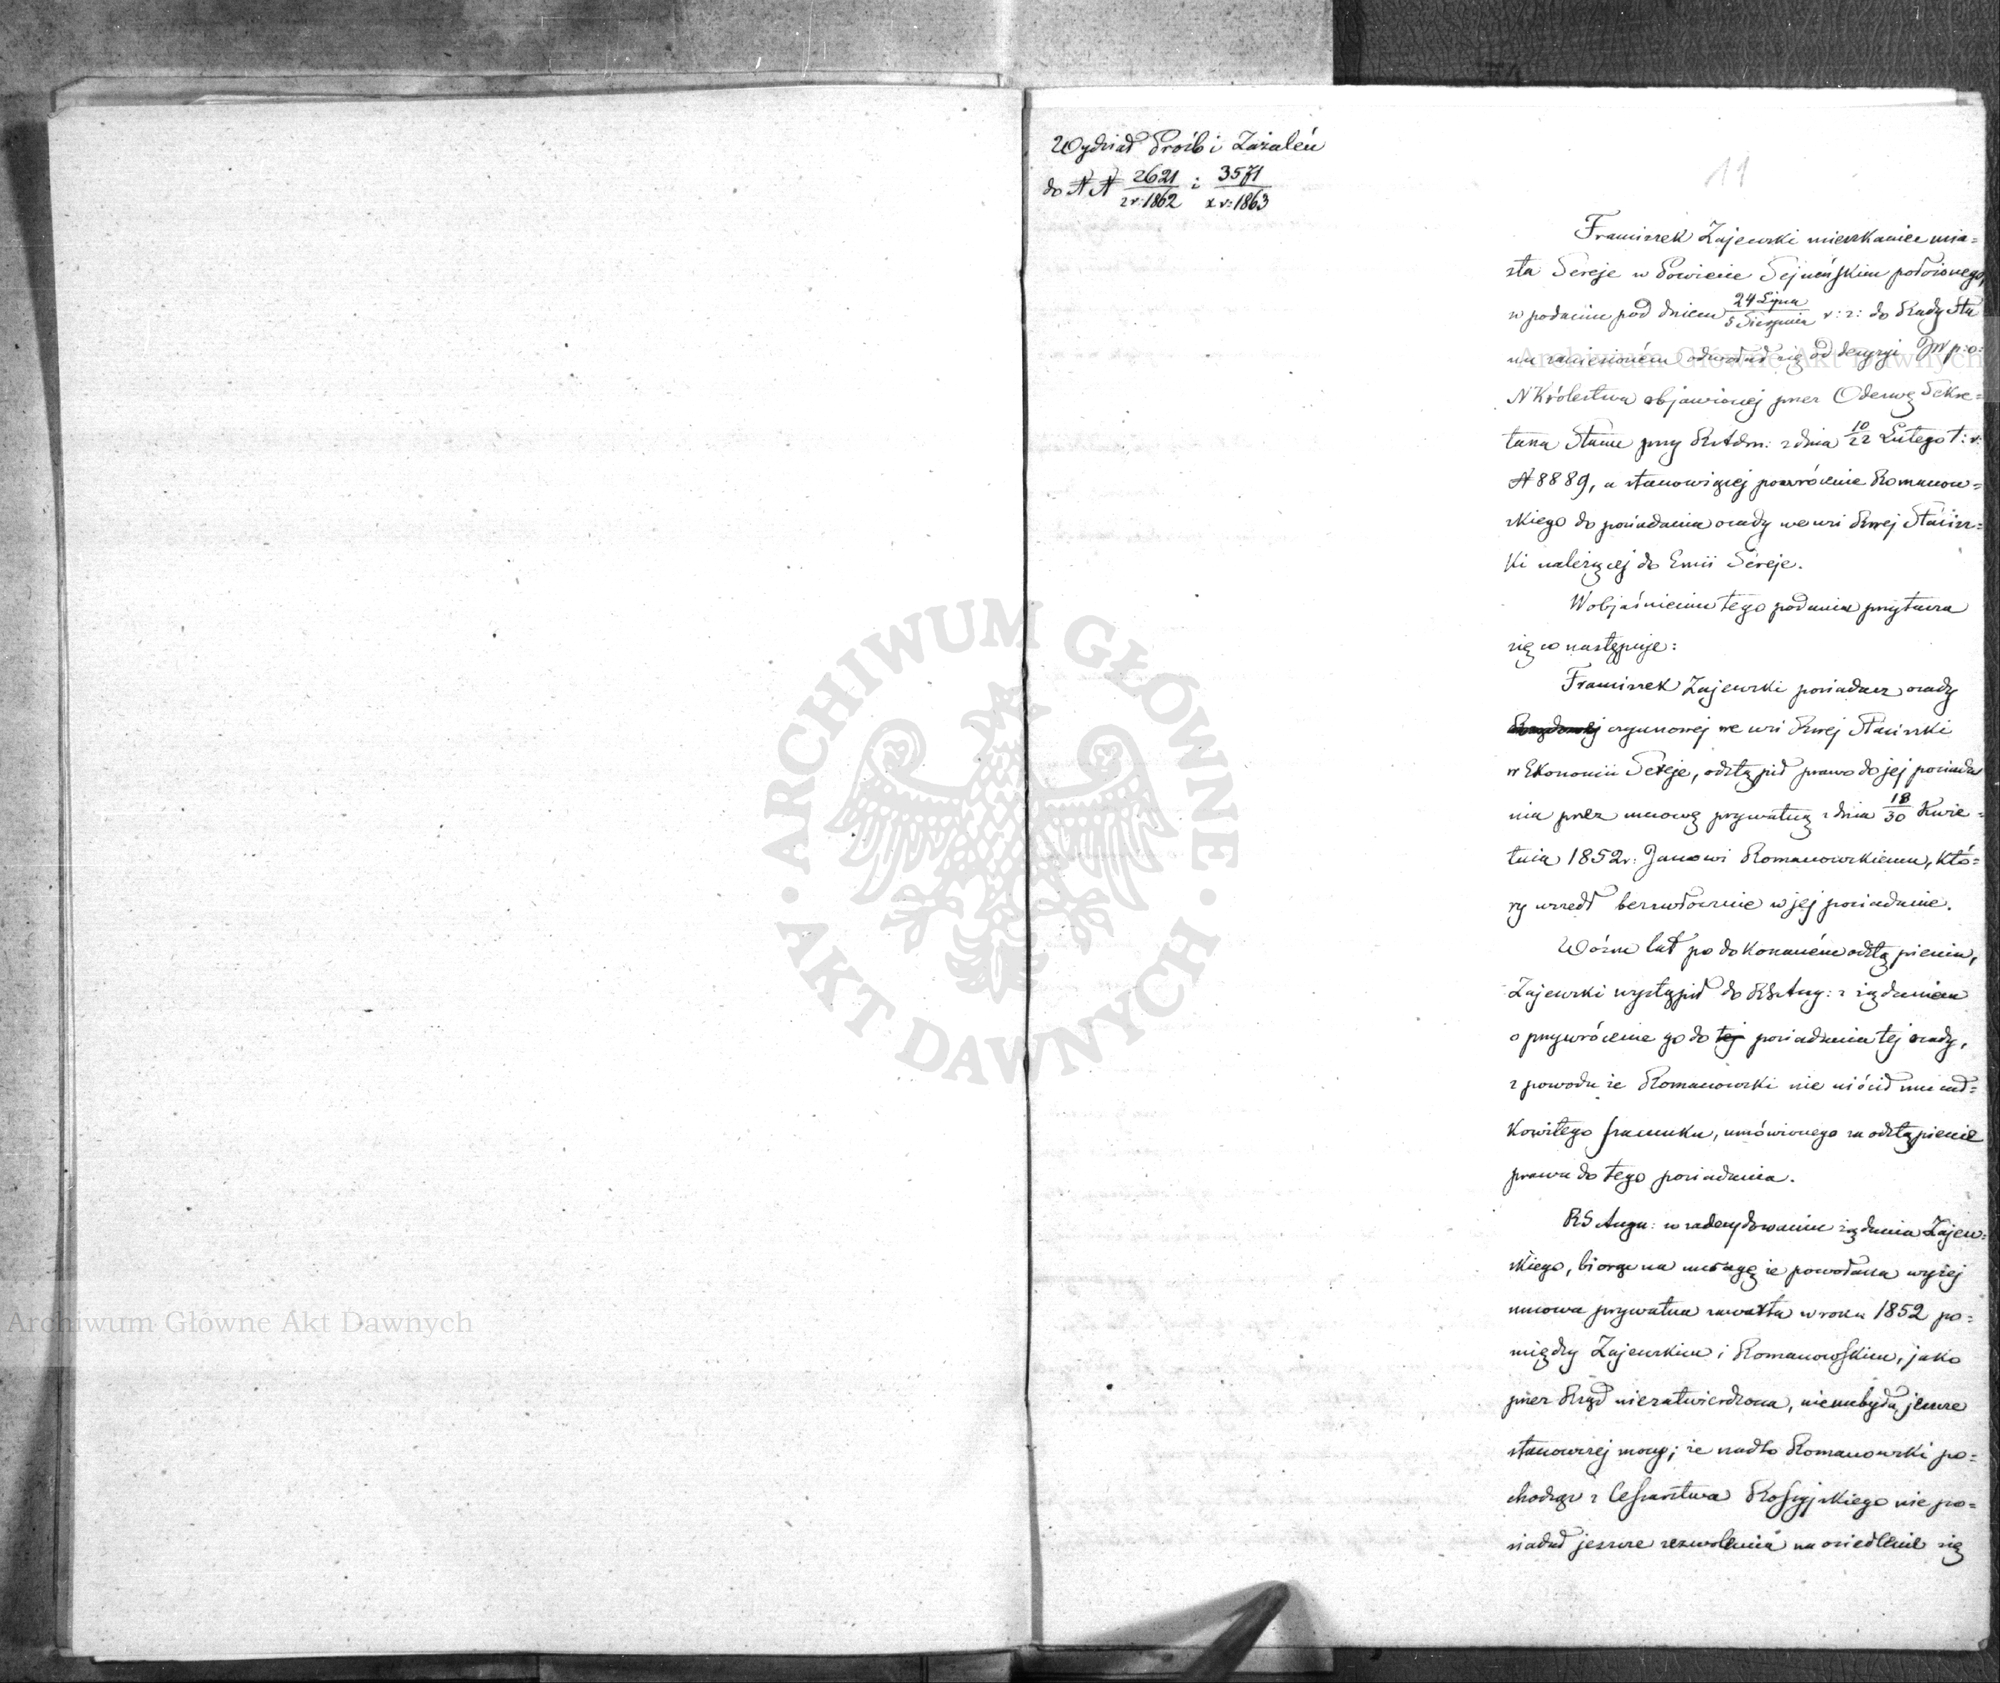 Wydział Próśb i Zażaleń
do NN 2621/z r: 1862 i 3571/z r: 1863
11
Franciszek Zajewski mieszkaniec mia=
sta Sereje w Powiecie Sejneńskim położonego,
w podaniu pod dniem 24 Lipca/5 Sierpnia r: z: do Rady Sta
nu zaniesioném odwołał się od decyzji JW p: o:
N Królestwa objawionej przez Odezwę Sekre=
tarza Stanu przy RAdm: z dnia 10/22 Lutego t: r:
N 8889, a stanowiącej powrócenie Romanow=
skiego do posiadania osady we wsi Rząej Stacisz=
ki należącej do Emii Sereje.
W objaśnieniu tego podania przytacza
się co następuje:
Franciszek Zajewski posiadacz osady
czynszowej we wsi Rząej Staciszki
w Ekonomii Sereje, odstąpił prawo do jej posiada
nia przez umowę prywatną z dnia 18/30 Kwie=
tnia 1852 r: Janowi Romanowskiemu, któ=
ry wszedł bezzwłocznie w jej posiadanie.
W ośm lat po dokonaném odstąpieniu,
Zajewski wystąpił do RGAug: z żądaniem
o przywrócenie go do tej posiadania tej osady,
z powodu że Romanowski nie uiścił mu cał=
kowitego szacunku, umówionego za odstąpienie
prawa do tego posiadania.
RGAugu: w zadecydowaniu żądania Zajew=
skiego, biorąc na uwagę że powołana wyżej
umowa prywatna zawarta w roku 1852 po=
między Zajewskim i Romanowskim, jako
przez Rząd niezatwierdzona, nienabyła jeszcze
stanowczej mocy; że nadto Romanowski po=
chodząc z Cesarstwa Rossyjskiego nie po=
siadał jeszcze zezwolenia na osiedlenie się
Archiwum Główne Akt Dawnych
Archiwum Główne Akt Dawnych
ARCHIWUM GŁÓWNE · AKT DAWNYCH ·